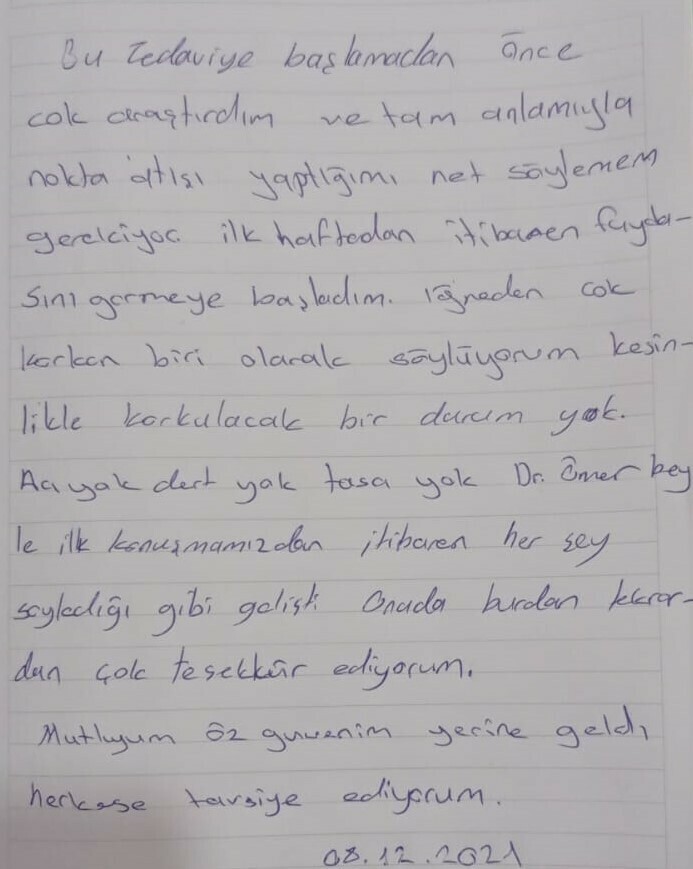 Bu Tedaviye başlamadan Önce
cok araştırdım ve tam anlamıyla
nokta atışı yaptığımı net söylemem
gerekiyor. ilk haftadan itibaren fayda-
sını görmeye başladım. iğneden cok
korkan biri olarak söylüyorum kesin-
likle korkulacak bir durum yok.
Acı yok dert yok tasa yok Dr. Ömer bey
le ilk konuşmamızdan itibaren her sey
soylediği gibi gelişti Onada burdan tekrar-
dan çok tesekkür ediyorum.
Mutluyum öz guvenim yerine geldi
herkese tavsiye ediyorum.
08.12.2021